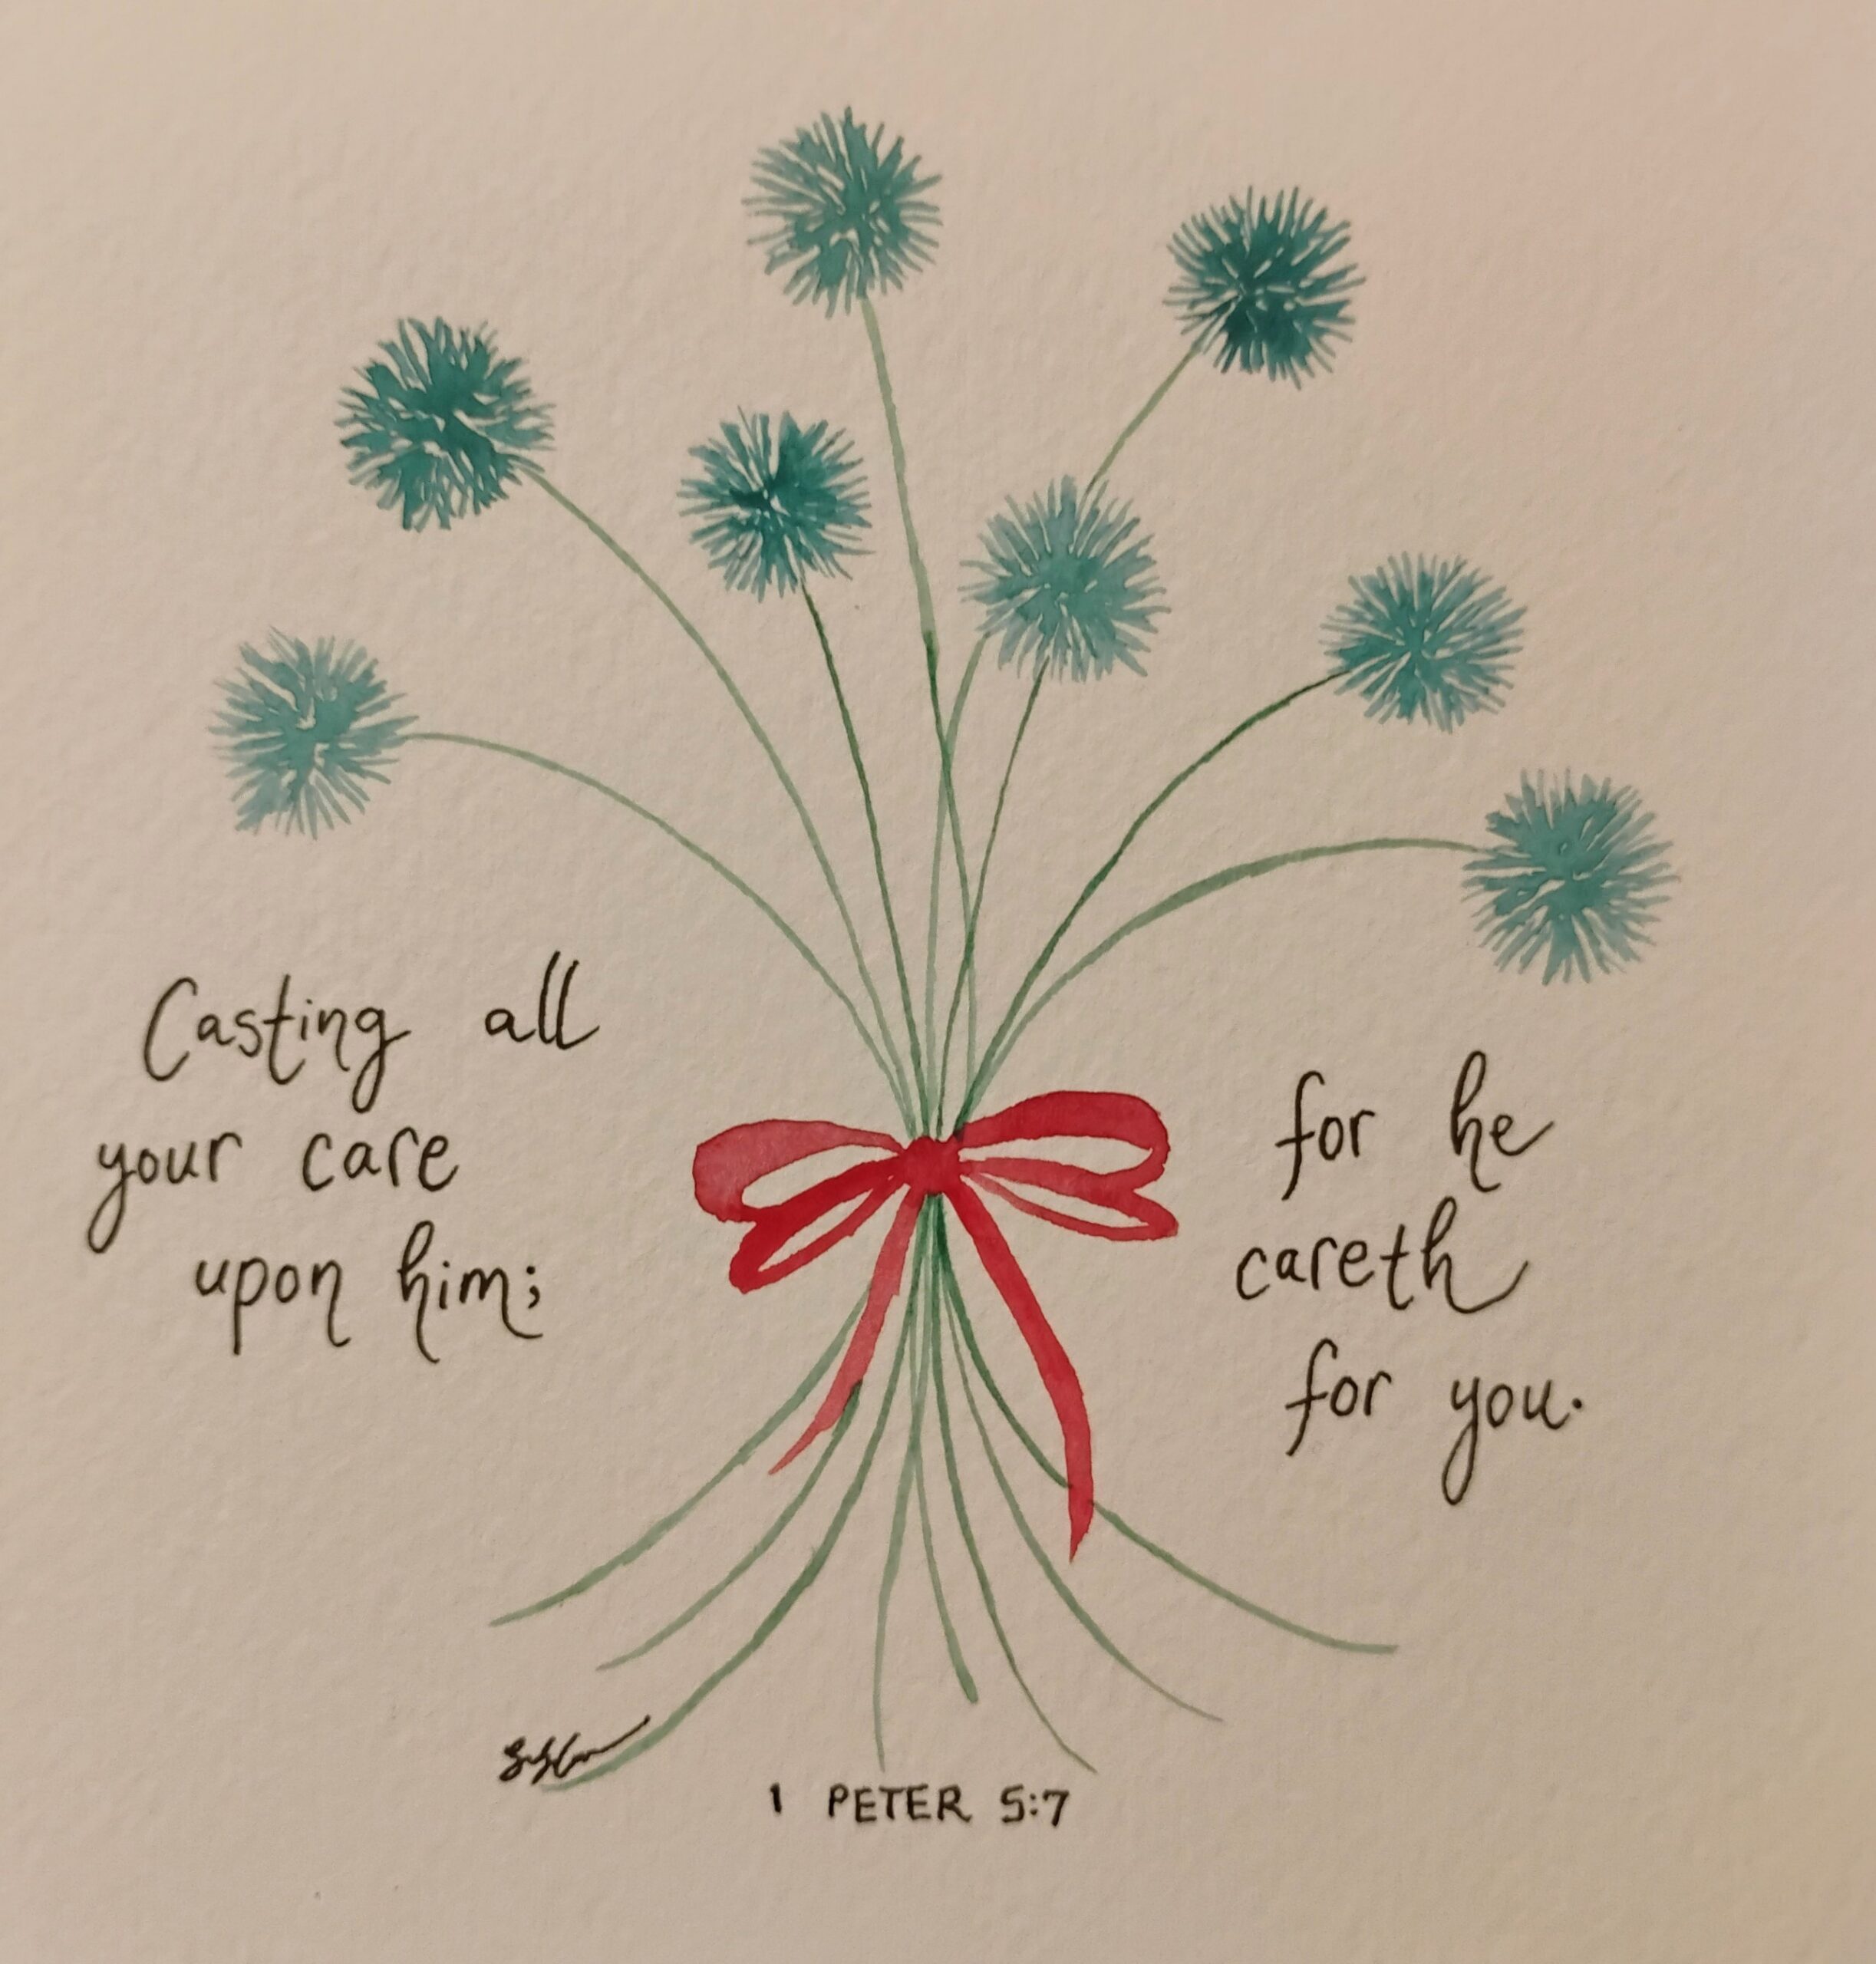 Casting all
your care
upon him;
for he
careth
for you.
1 PETER 5:7